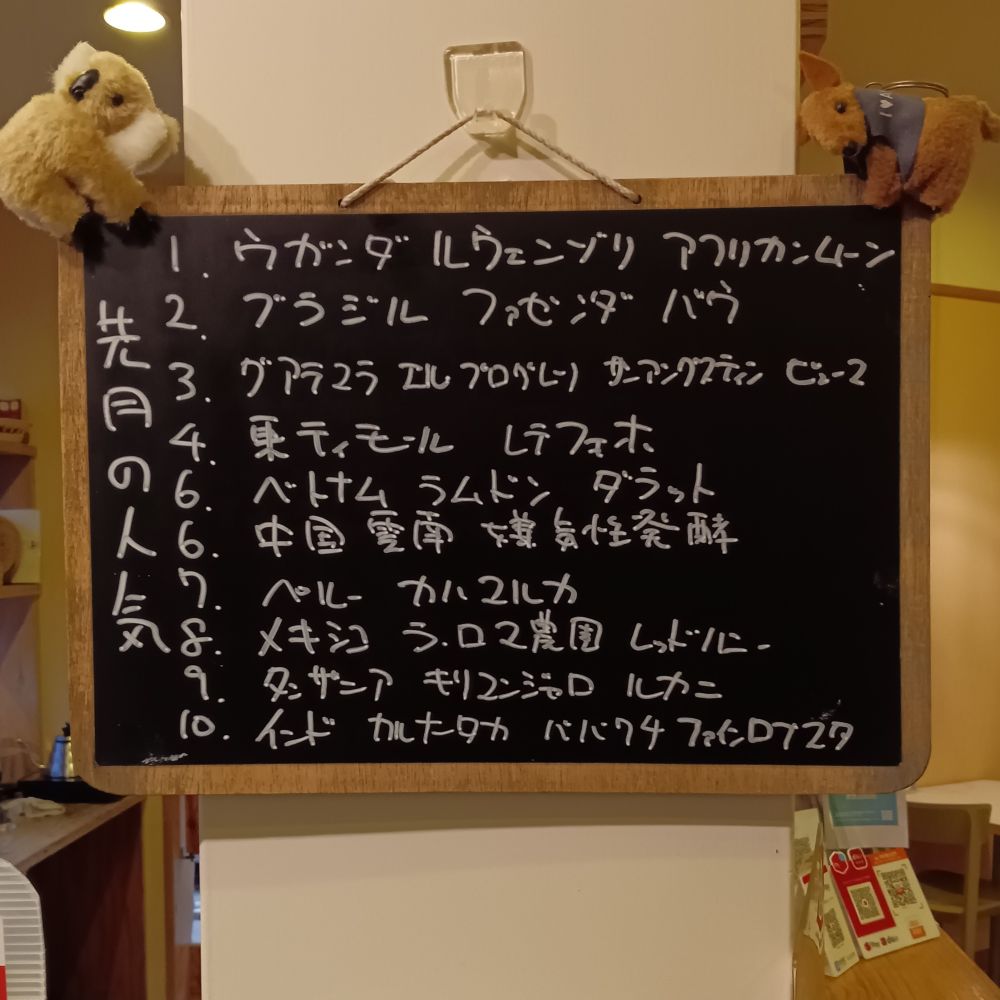 先月の人気
1. ウガンダ ルウェンゾリ アフリカンムーン
2. ブラジル ファゼンダ バウ
3. グアテマラ エル プログレソ サンアングスティン ビュース
4. 東ティモール レテフォホ
6. ベトナム ラムドン ダラット
6. 中国 雲南 嫌気性発酵
7. ペルー カハマルカ
8. メキシコ ラ・ロマ農園 レッドハニー
9. タンザニア キリマンジャロ ルカニ
10. インド カルナータカ ババワチ ファインロブスタ